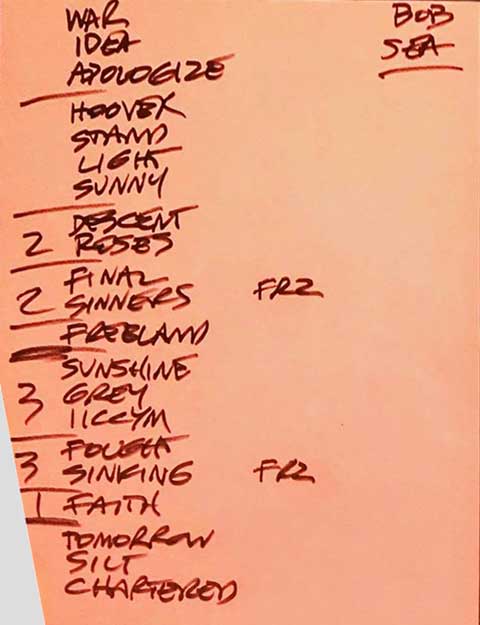 WAR
BOB
IDEA
SEA
APOLOGIZE
HOOVER
STAND
LIGHT
SUNNY
DESCENT
2 ROSES
FINAL
2 SINNERS FRZ
FREELAND
SUNSHINE
3 GREY
IICCYM
FOUGHT
3 SINKING FRZ
1 FAITH
TOMORROW
SILT
CHARTERED